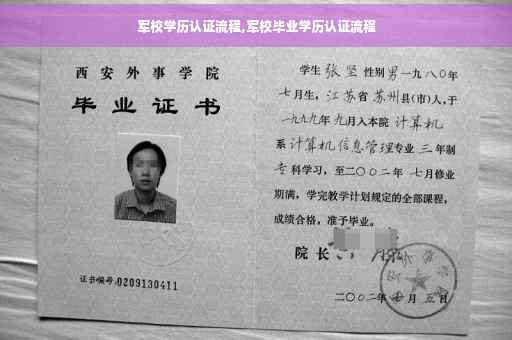 军校学历认证流程,军校毕业学历认证流程
西安外事学院
毕业证书
证书编号:0209130411
学生 张坚 性别 男 一九八〇年
七月生, 江苏省 苏州县(市)人,于
一九九九年 九月入本院 计算机
系 计算机信息管理专业 三 年制
专 科学习, 至二〇〇二年 七月修业
期满, 学完教学计划规定的全部课程,
成绩合格, 准予毕业。
院长
二〇〇二年 月 五日